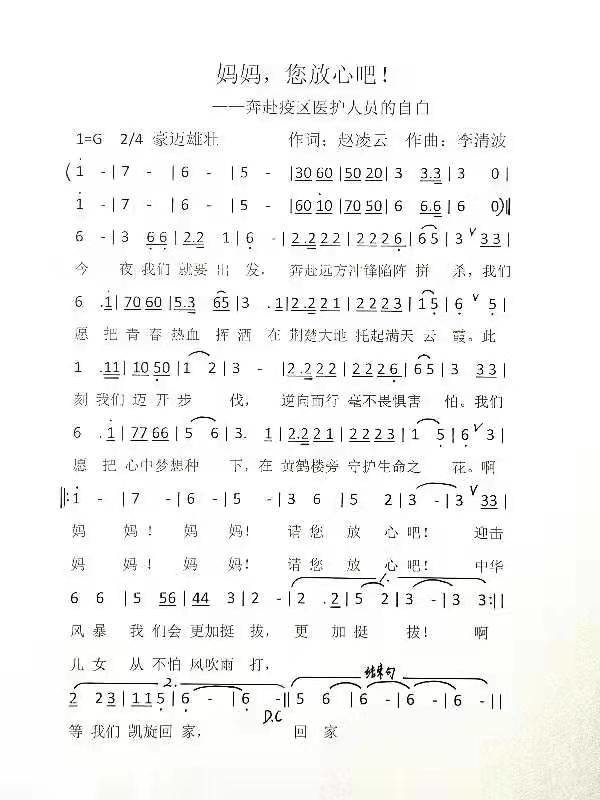 妈妈，您放心吧！
——奔赴疫区医护人员的自白
1=G 2/4 豪迈雄壮 作词：赵凌云 作曲：李清波
(1 - | 7 - | 6 - | 5 - | 30 60 | 50 50 | 3 3.3 | 3 0 |
1 - | 7 - | 6 - | 5 - | 60 10 | 70 50 | 6 6.6 | 6 0) ||
6 - | 3 66 | 2.2 1 | 6 - | 2.222 | 2226 | 3 65 | 3 V 33 |
今 夜我们 就要 出 发， 奔赴远方冲锋陷阵 拼 杀，我们
6 .1 | 70 60 | 5.3 65 | 3 - | 2.222 | 2221 | 1 5 | 6 V 5 |
愿 把 青春 热血 挥 洒 在 荆楚大地 托起满天 云 霞。此
1 .11 | 10 50 | 1 2 | 3 - | 2.222 | 2226 | 6 5 | 3 33 |
刻 我们 迈 开 步 伐， 逆向而行 毫不畏惧害 怕。我们
6 .1 | 77 66 | 5 6 | 3. 3 | 2.221 | 3332 | 1 5 | 6 V 5 |
愿 把 心中梦想种 下，在 黄鹤楼旁 守护生命之 花。啊
||: 1 - | 7 - | 6 - | 5 - | 1 6 | 5 2 | 3 - | 3 V 33 |
妈 妈！ 妈 妈！ 请您 放 心吧！ 迎击
妈 妈！ 妈 妈！ 请您 放 心吧！ 中华
1.
6 6 | 56 | 44 3 | 3 - | 2 2. | 5 2 | 3 - | 3 :||
风暴 我 们会 更加挺 拔， 更 加 挺 拔！ 啊
儿女 从 不怕 风吹雨 打，
2. 结束句
2 23 | 115 | 6 - | 6 - || 5 6 | 6 - | 6 - | 6 - ||
D.C
等 我们 凯旋回 家， 回 家